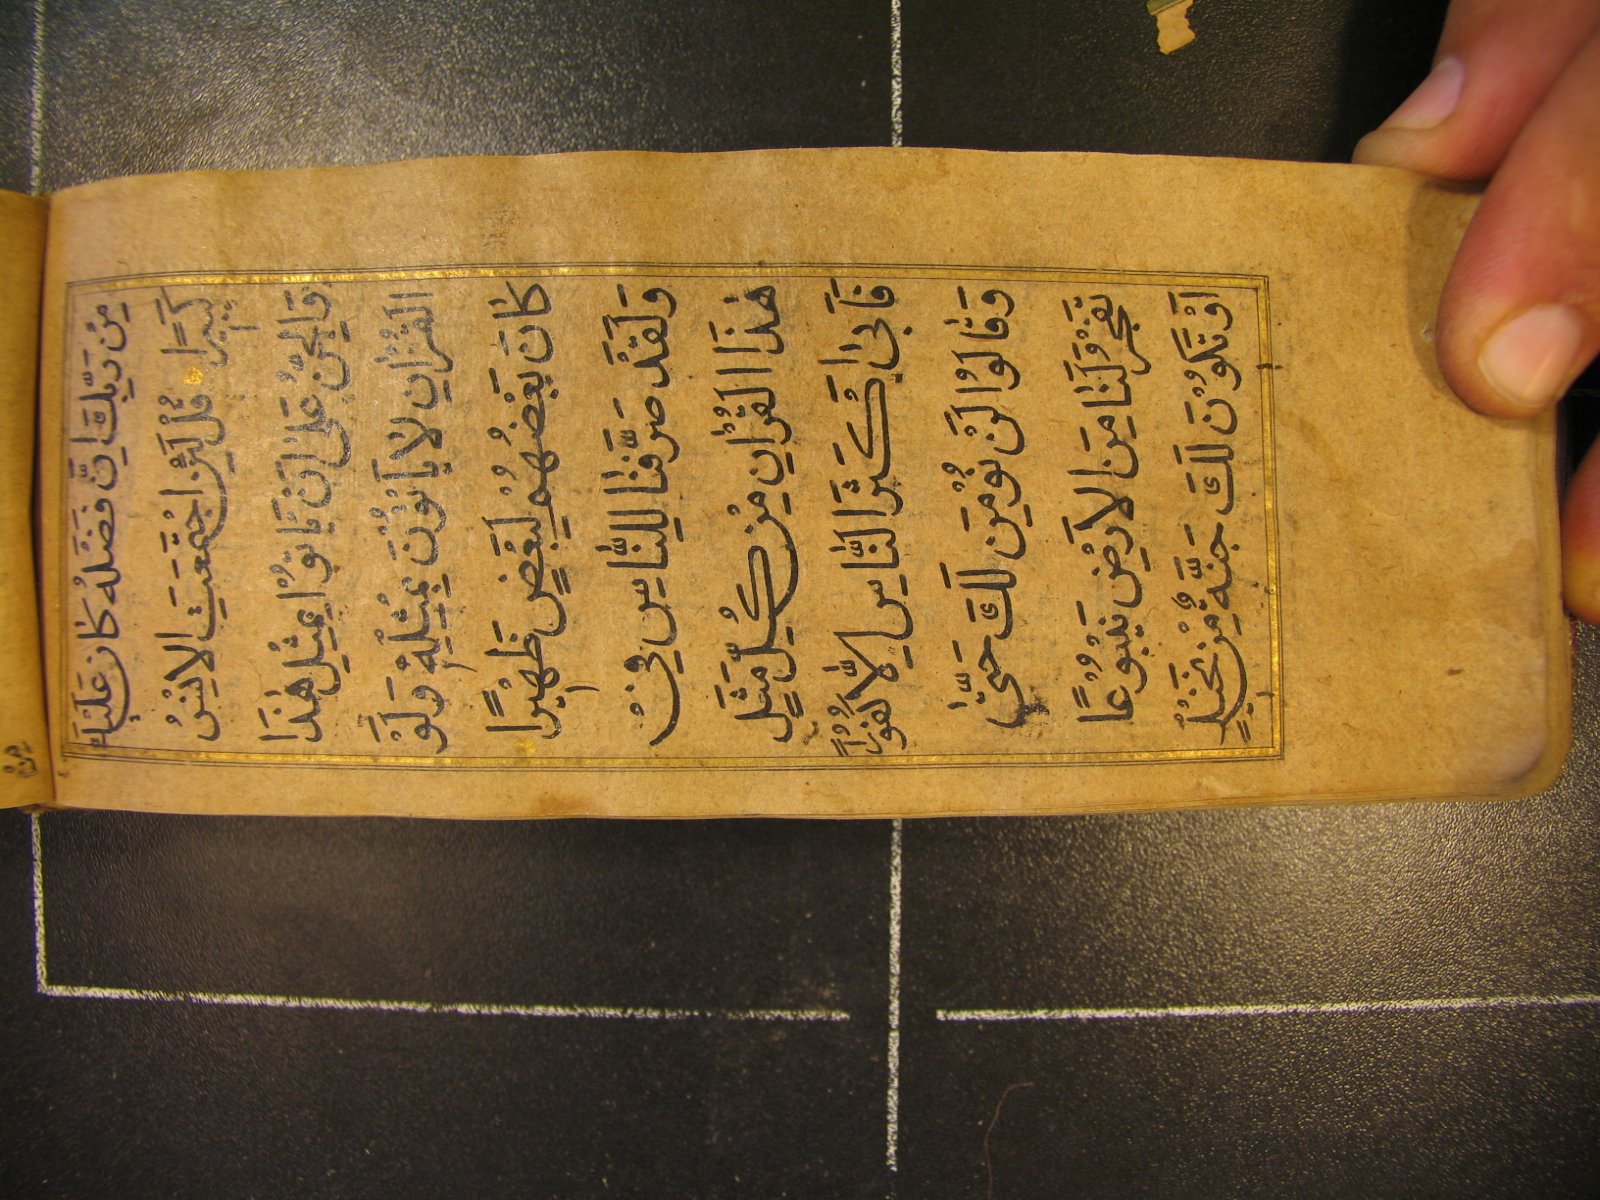 مِنْ رَبِّكَ اِنَّ فَضْلَهُ كَانَ عَلَيْكَ
كَبِيْرًا قُلْ لَئِنِ اجْتَمَعَتِ الْاِنْسُ
وَالْجِنُّ عَلٰى اَنْ يَاْتُوْا بِمِثْلِ هٰذَا
الْقُرْاٰنِ لَا يَاْتُوْنَ بِمِثْلِهٖ وَلَوْ
كَانَ بَعْضُهُمْ لِبَعْضٍ ظَهِيْرًا
وَلَقَدْ صَرَّفْنَا لِلنَّاسِ فِيْ
هٰذَا الْقُرْاٰنِ مِنْ كُلِّ مَثَلٍ
فَاَبٰى اَكْثَرُ النَّاسِ اِلَّا كُفُوْرًا
وَقَالُوْا لَنْ نُؤْمِنَ لَكَ حَتّٰى
تَفْجُرَ لَنَا مِنَ الْاَرْضِ يَنْبُوْعًا
اَوْ تَكُوْنَ لَكَ جَنَّةٌ مِّنْ نَّخِيْلٍ